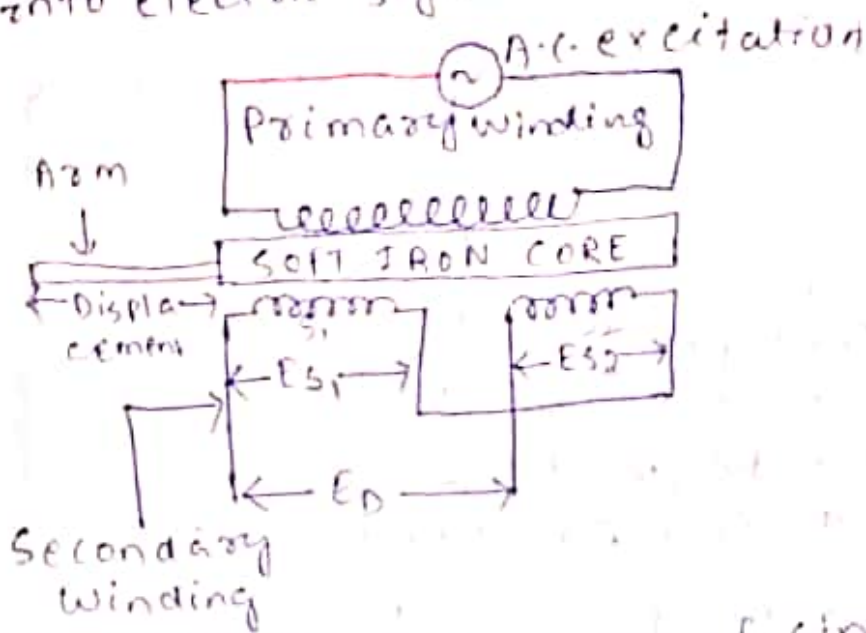 into
A.C. excitation
Primary winding
Arm
SOFT IRON CORE
Displa
cement
S1
ES1
ES2
ED
Secondary
winding